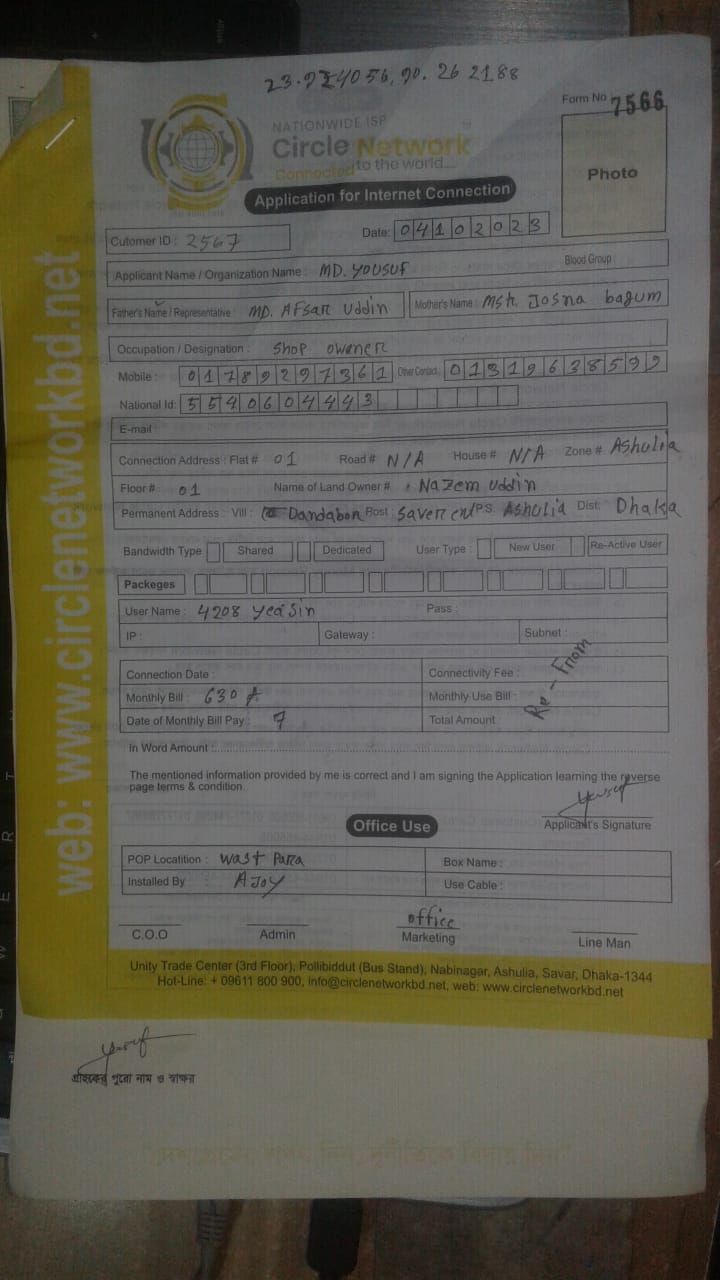 23.924056, 90.262188
Form No 7566
NATIONWIDE ISP
Circle Network
Connected to the world...
Photo
Application for Internet Connection
Cutomer ID : 2567
Date: 04102023
Applicant Name / Organization Name : MD. YOUSUF
Blood Group :
Father's Name / Representative : MD. AFsar Uddin
Mother's Name : Mst. Josna bagum
Occupation / Designation : Shop owener
Mobile : 01789297361 Other Contact : 01319638599
National Id: 5540604443
E-mail
Connection Address : Flat # 01 Road # N/A House # N/A Zone # Ashulia
Floor # 01 Name of Land Owner # Nazem uddin
Permanent Address : Vill : Dandabor Post : Saver cent P.S. Ashulia Dist: Dhaka
Bandwidth Type Shared Dedicated User Type : New User Re-Active User
Packeges
User Name : 4208 yeasin Pass :
IP : Gateway : Subnet :
Connection Date : Connectivity Fee :
Monthly Bill : 630 Monthly Use Bill :
Date of Monthly Bill Pay : 7 Total Amount
Re - From
In Word Amount :
The mentioned information provided by me is correct and I am signing the Application learning the reverse
page terms & condition.
Yousuf
Applicant's Signature
Office Use
POP Locatition : wast Para Box Name :
Installed By : AJoy Use Cable :
office
C.O.O Admin Marketing Line Man
Unity Trade Center (3rd Floor), Pollibiddut (Bus Stand), Nabinagar, Ashulia, Savar, Dhaka-1344
Hot-Line: + 09611 800 900, info@circlenetworkbd.net, web: www.circlenetworkbd.net
web: www.circlenetworkbd.net
Yousuf
গ্রাহকের পুরো নাম ও স্বাক্ষর
"দেশপ্রেমের শপথ নিন, দুর্নীতিকে বিদায় দিন"